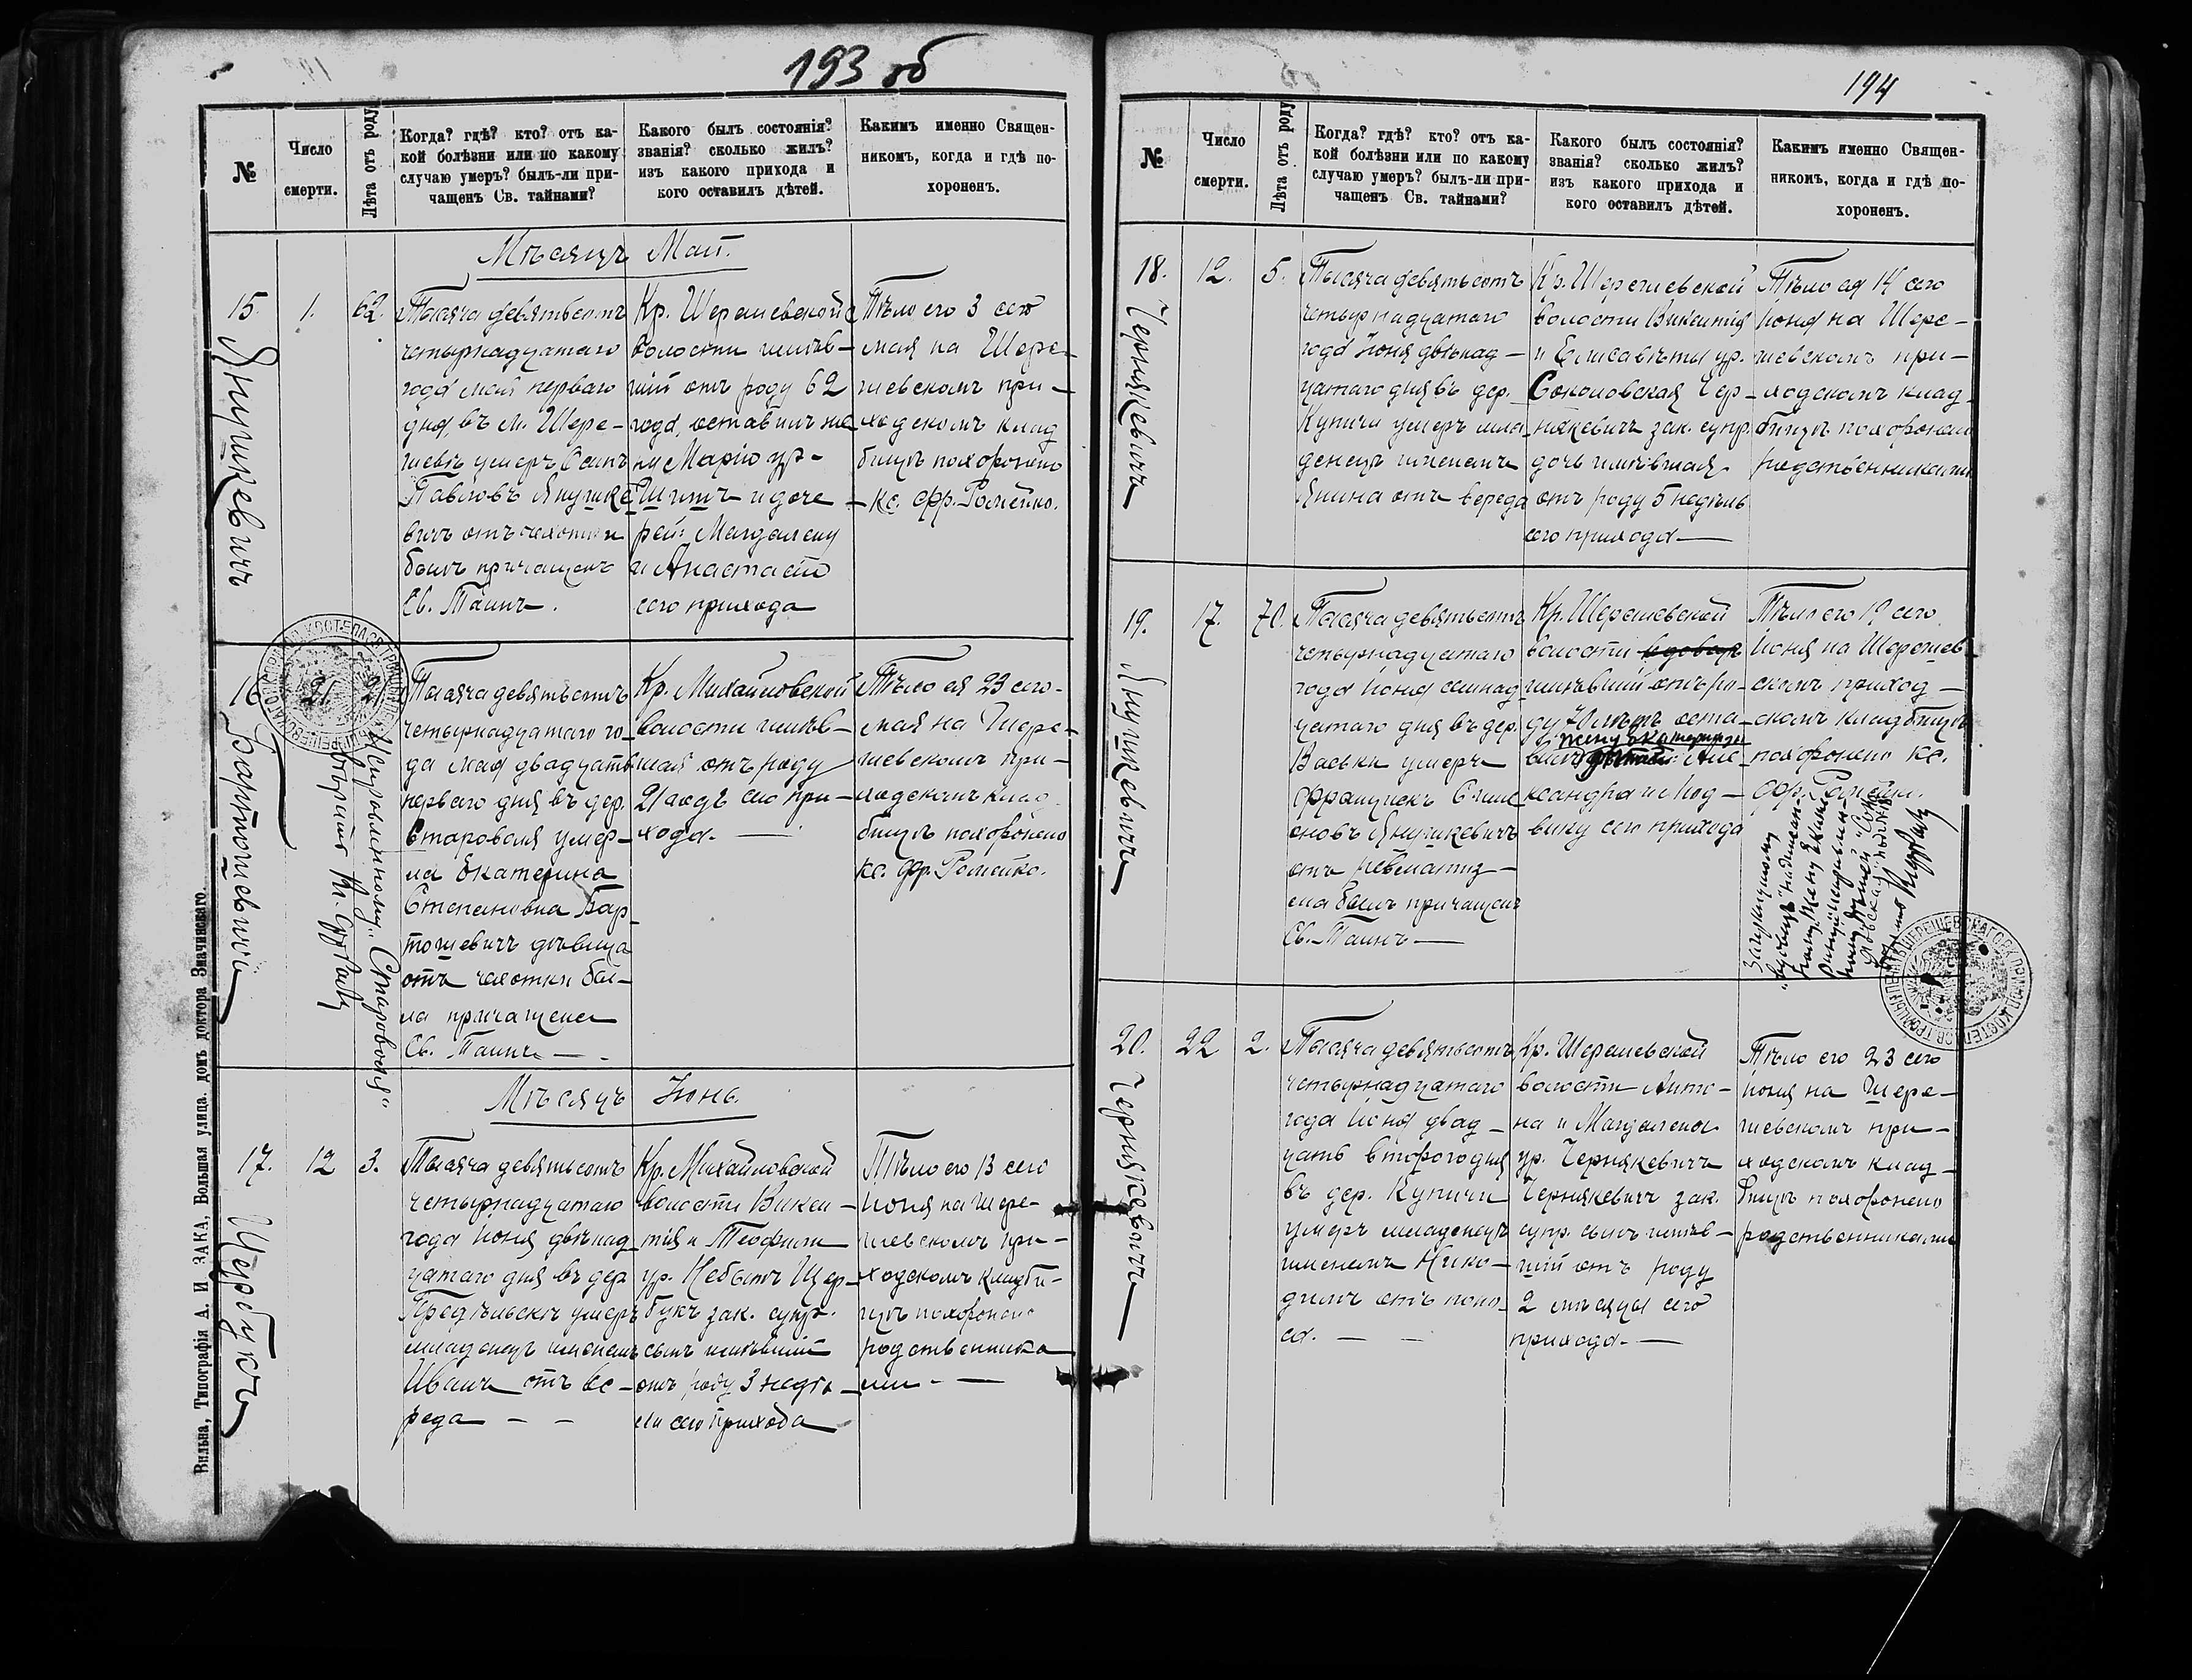 193 об
№
Число
смерти.
Лѣта отъ роду
Когда? гдѣ? кто? отъ ка-
кой болѣзни или по какому
случаю умеръ? былъ-ли при-
чащенъ Св. тайнами?
Какого былъ состоянія?
званія? сколько жилъ?
изъ какого прихода и
кого оставилъ дѣтей.
Какимъ именно Священ-
никомъ, когда и гдѣ по-
хороненъ.
Мѣсяцъ Май.
15.
Янушкевичъ
1.
62.
Тысяча девятьсотъ
четырнадцатаго
года мая перваго
дня, въ м. Шере-
шевѣ умеръ Осипъ
Павловъ Янушке
вичъ отъ чахотки
былъ причащенъ
Св. Таинъ.
Кр. Шерешевской
волости живъ-
шій отъ роду 62
года, оставилъ же-
ну Марію ур.
Шишъ и доче
рей: Магдалену
и Анастасію
сего прихода
Тѣло его 3 сего
мая на Шере-
шевскомъ при-
ходскомъ клад
бищѣ похоронено
кс. Фр. Ромейко.
16
Бартошевичъ
21
21
Исправленному „Староволя“
вѣрить Кс.
Тысяча девятьсотъ
четырнадцатаго го-
да мая двадцать
перваго дня въ дер.
Староволя умер-
ла Екатерина
Степановна Бар
тошевичъ дѣвица
отъ чахотки бы-
ла причащена
Св. Таинъ — .
Кр. Михайловской
волости живъ-
шая отъ роду
21 годъ сего при-
хода. —
Тѣло ея 23 сего
мая на Шере-
шевскомъ при-
ходскомъ клад
бищѣ похоронено
кс. Фр. Ромейко.
Мѣсяцъ Іюнь.
17.
Щербукъ
12
3.
Тысяча девятьсотъ
четырнадцатаго
года Іюня двѣнад-
цатаго дня въ дер
умеръ
младенецъ именемъ
Иванъ отъ ве-
реда — —
Кр. Михайловской
волости Викен-
тія и Теофили
ур. Небытъ Щер-
букъ зак. супр.
сынъ жившій
отъ роду 3 недѣ-
ли сего прихода
Тѣло его 13 сего
Іюня на Шере-
шевскомъ при-
ходскомъ кладби-
щѣ похоронено
родственника
ми. —
Вильна, Типографія А. И. ЗАКА, Большая улица. домъ доктора Значинскаго.
194
№
Число
смерти.
Лѣта отъ роду
Когда? гдѣ? кто? отъ ка-
кой болѣзни или по какому
случаю умеръ? былъ-ли при-
чащенъ Св. тайнами?
Какого былъ состоянія?
званія? сколько жилъ?
изъ какого прихода и
кого оставилъ дѣтей.
Какимъ именно Священ-
никомъ, когда и гдѣ по-
хороненъ.
18.
Чернякевичъ
12.
5.
Тысяча девятьсотъ
четырнадцатаго
года Іюня двѣнад-
цатаго дня въ дер.
Купичи умеръ мла-
денецъ именемъ
Янина отъ вереда
Кр. Шерешевской
волости Викентія
и Елисаветы ур.
Соколовская Чер-
някевичъ зак. супр.
дочь жившая
отъ роду 5 недѣль
сего прихода —
Тѣло ея 14 сего
Іюня на Шере-
шевскомъ при-
ходскомъ клад-
бищѣ похоронено
родственниками
19.
Янушкевичъ
17.
70.
Тысяча девятьсотъ
четырнадцатаго
года Іюня семнад
цатаго дня въ дер.
Васьки умеръ
Францискъ Симе
оновъ Янушкевичъ
отъ ревматиз-
ма былъ причащенъ
Св. Таинъ —
Кр. Шерешевской
волости вдовецъ
жившій отъ ро-
ду 70 лѣтъ оста-
жену Екатерину
вилъ дѣтей: Але-
ксандра и Люд-
вику сего прихода
Тѣло его 19 сего
Іюня на Шерешев-
скомъ приход-
скомъ кладбищѣ
похоронено кс.
Фр. Ромейко.
20.
Чернякевичъ
22
2.
Тысяча девятьсотъ
четырнадцатаго
года Іюня двад-
цать втораго дня
въ дер. Купичи
умеръ младенецъ
именемъ Нико-
димъ отъ поно-
са. — —
Кр. Шерешевской
волости Анто-
на и Магдалены
ур. Чернякевичъ
Чернякевичъ зак.
супр. сынъ живъ-
шій отъ роду
2 мѣсяца сего
прихода. —
Тѣло его 23 сего
Іюня на Шере-
шевскомъ при-
ходскомъ клад-
бищѣ похоронено
родственниками